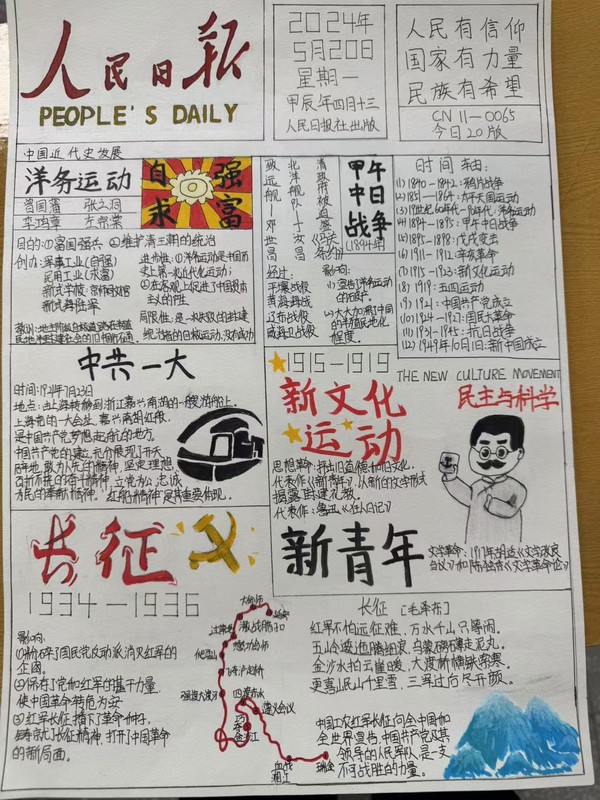 人民日报
PEOPLE'S DAILY
2024年
5月20日
星期一
甲辰年四月十三
人民日报社出版
人民有信仰
国家有力量
民族有希望
CN 11-0065
今日20版
中国近代史发展
洋务运动
曾国藩 张之洞
李鸿章 左宗棠
自强
求富
目的:①富国强兵 ②维护清王朝的统治
创办:军事工业(自强)
民用工业(求富)
新式学校:京师同文馆
新式海陆军
进步性:①洋务运动是中国历
史上第一次近代化运动;
②在客观上促进了中国资本
主义的产生
局限性:是一次失败的封建
统治者的自救运动,没有成功
甲午
中日
战争
(1894年)
致远舰—邓世昌
北洋舰队—丁汝昌
清政府被迫签
《马关条约》
经过:
平壤战役
黄海海战
辽东战役
威海卫战役
影响:
1)宣告了洋务运动
的破产。
2)大大加深了中国
的半殖民地化
程度。
时间轴:
(1)1840-1842:鸦片战争
(2)1851-1864:太平天国运动
(3)19世纪60年代-90年代:洋务运动
(4)1894-1895:甲午中日战争
(5)1895-1898:戊戌变法
(6)1911-1912:辛亥革命
(7)1915-1923:新文化运动
(8)1919:五四运动
(9)1921:中国共产党成立
(10)1924-1927:国民大革命
(11)1931-1945:抗日战争
(12)1949年10月1日:新中国成立
中共一大
时间:1921年7月23日
地点:由上海转移到浙江嘉兴南湖的一艘游船上。
上海党的一大会址、嘉兴南湖红船
是中国共产党梦想起航的地方。
中国共产党的建立,充分展现了开天
辟地,敢为人先的精神,坚定理想,
百折不挠的奋斗精神,立党为公,忠诚
为民的奉献精神。红船精神是其重要体现。
1915-1919
新文化
运动
THE NEW CULTURE MOVEMENT
民主与科学
思想革命:抨击旧道德和旧文化。
代表作:《新青年》,以新的文学形式
揭露封建礼教。
代表作:鲁迅《狂人日记》
新青年
文学革命:1917年胡适《文学改良
刍议》和陈独秀《文学革命论》
长征
1934-1936
影响:
①粉碎了国民党反动派消灭红军的
企图。
②保存了党和红军的基干力量,
使中国革命转危为安
③红军长征播下了革命种子,
铸就了长征精神,打开了中国革命
的新局面。
大会师
过草地
激战腊子口
懋功会师
飞夺泸定桥
强渡大渡河
四渡赤水
遵义会议
巧渡
金沙江
血战
湘江
瑞金
长征 [毛泽东]
红军不怕远征难,万水千山只等闲。
五岭逶迤腾细浪,乌蒙磅礴走泥丸。
金沙水拍云崖暖,大渡桥横铁索寒。
更喜岷山千里雪,三军过后尽开颜。
中国工农红军长征向全中国和
全世界宣告,中国共产党及其
领导的人民军队是一支
不可战胜的力量。